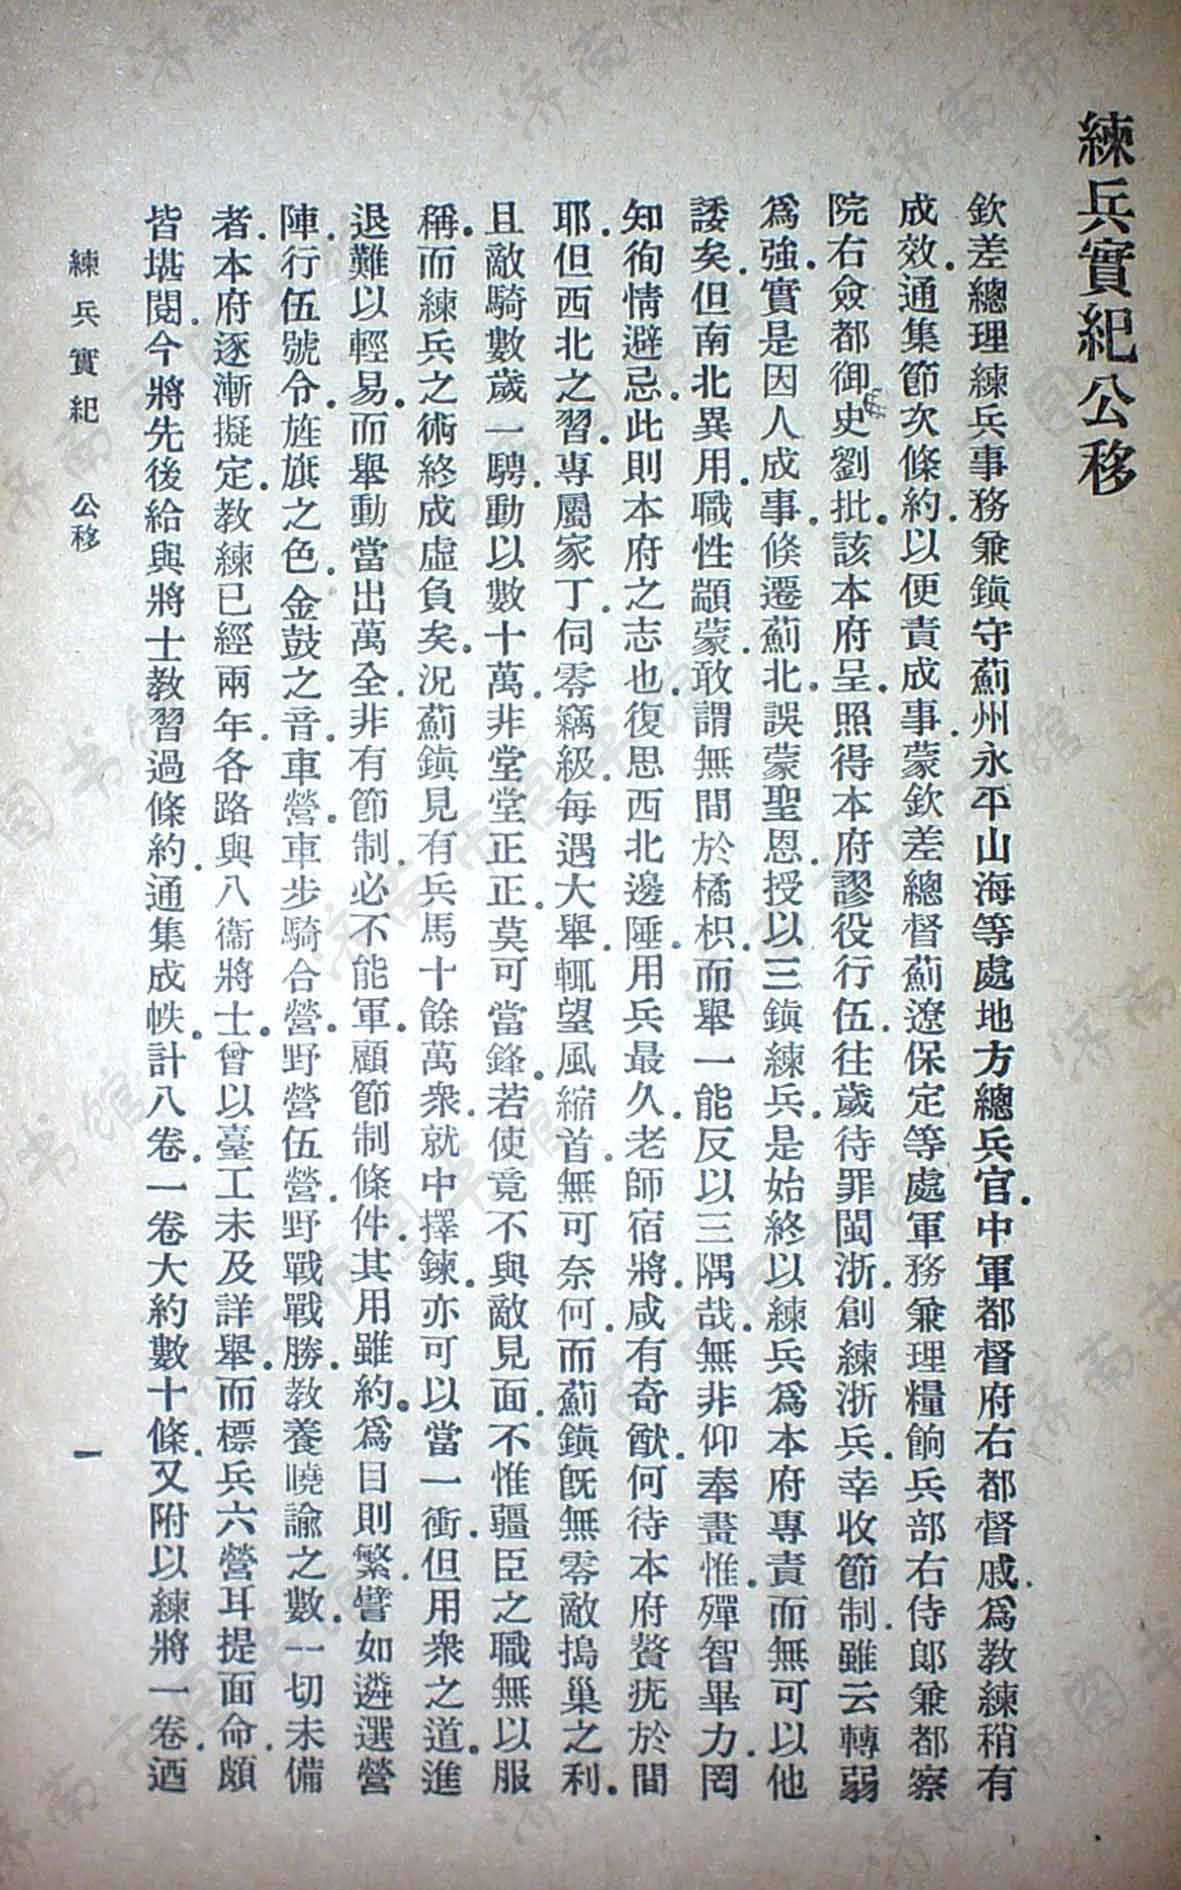 練兵實紀公移
欽差總理練兵事務兼鎮守薊州永平山海等處地方總兵官.中軍都督府右都督戚.爲教練稍有
成效.通集節次條約.以便責成事.蒙欽差總督薊遼保定等處軍務兼理糧餉兵部右侍郎兼都察
院右僉都御史劉批.該本府呈.照得本府謬役行伍.往歲待罪閩浙.創練浙兵.幸收節制.雖云轉弱
爲強.實是因人成事.倏遷薊北.誤蒙聖恩.授以三鎮練兵.是始終以練兵爲本府專責而無可以他
諉矣.但南北異用.職性顓蒙.敢謂無間於橘枳.而舉一能反以三隅哉.無非仰奉晝惟.殫智畢力.罔
知徇情避忌.此則本府之志也.復思西北邊陲.用兵最久.老師宿將.咸有奇猷.何待本府贅疣於間
耶.但西北之習.專屬家丁.伺零竊級.每遇大舉.輒望風縮首.無可奈何.而薊鎮既無零敵搗巢之利.
且敵騎數歲一騁.動以數十萬.非堂堂正正.莫可當鋒.若使竟不與敵見面.不惟疆臣之職無以服
稱.而練兵之術終成虛負矣.況薊鎮見有兵馬十餘萬衆.就中擇鍊.亦可以當一衝.但用衆之道.進
退難以輕易.而舉動當出萬全.非有節制.必不能軍.顧節制條件.其用雖約.爲目則繁.譬如遴選營
陣.行伍號令.旌旗之色.金鼓之音.車營.車步騎合營.野營伍營.野戰戰勝.教養曉諭之數.一切未備
者.本府逐漸擬定.教練已經兩年.各路與八衞將士.曾以臺工未及詳舉.而標兵六營耳提面命.頗
皆堪閱.今將先後給與將士教習過條約.通集成帙.計八卷.一卷大約數十條.又附以練將一卷.迺
練兵實紀 公移
一